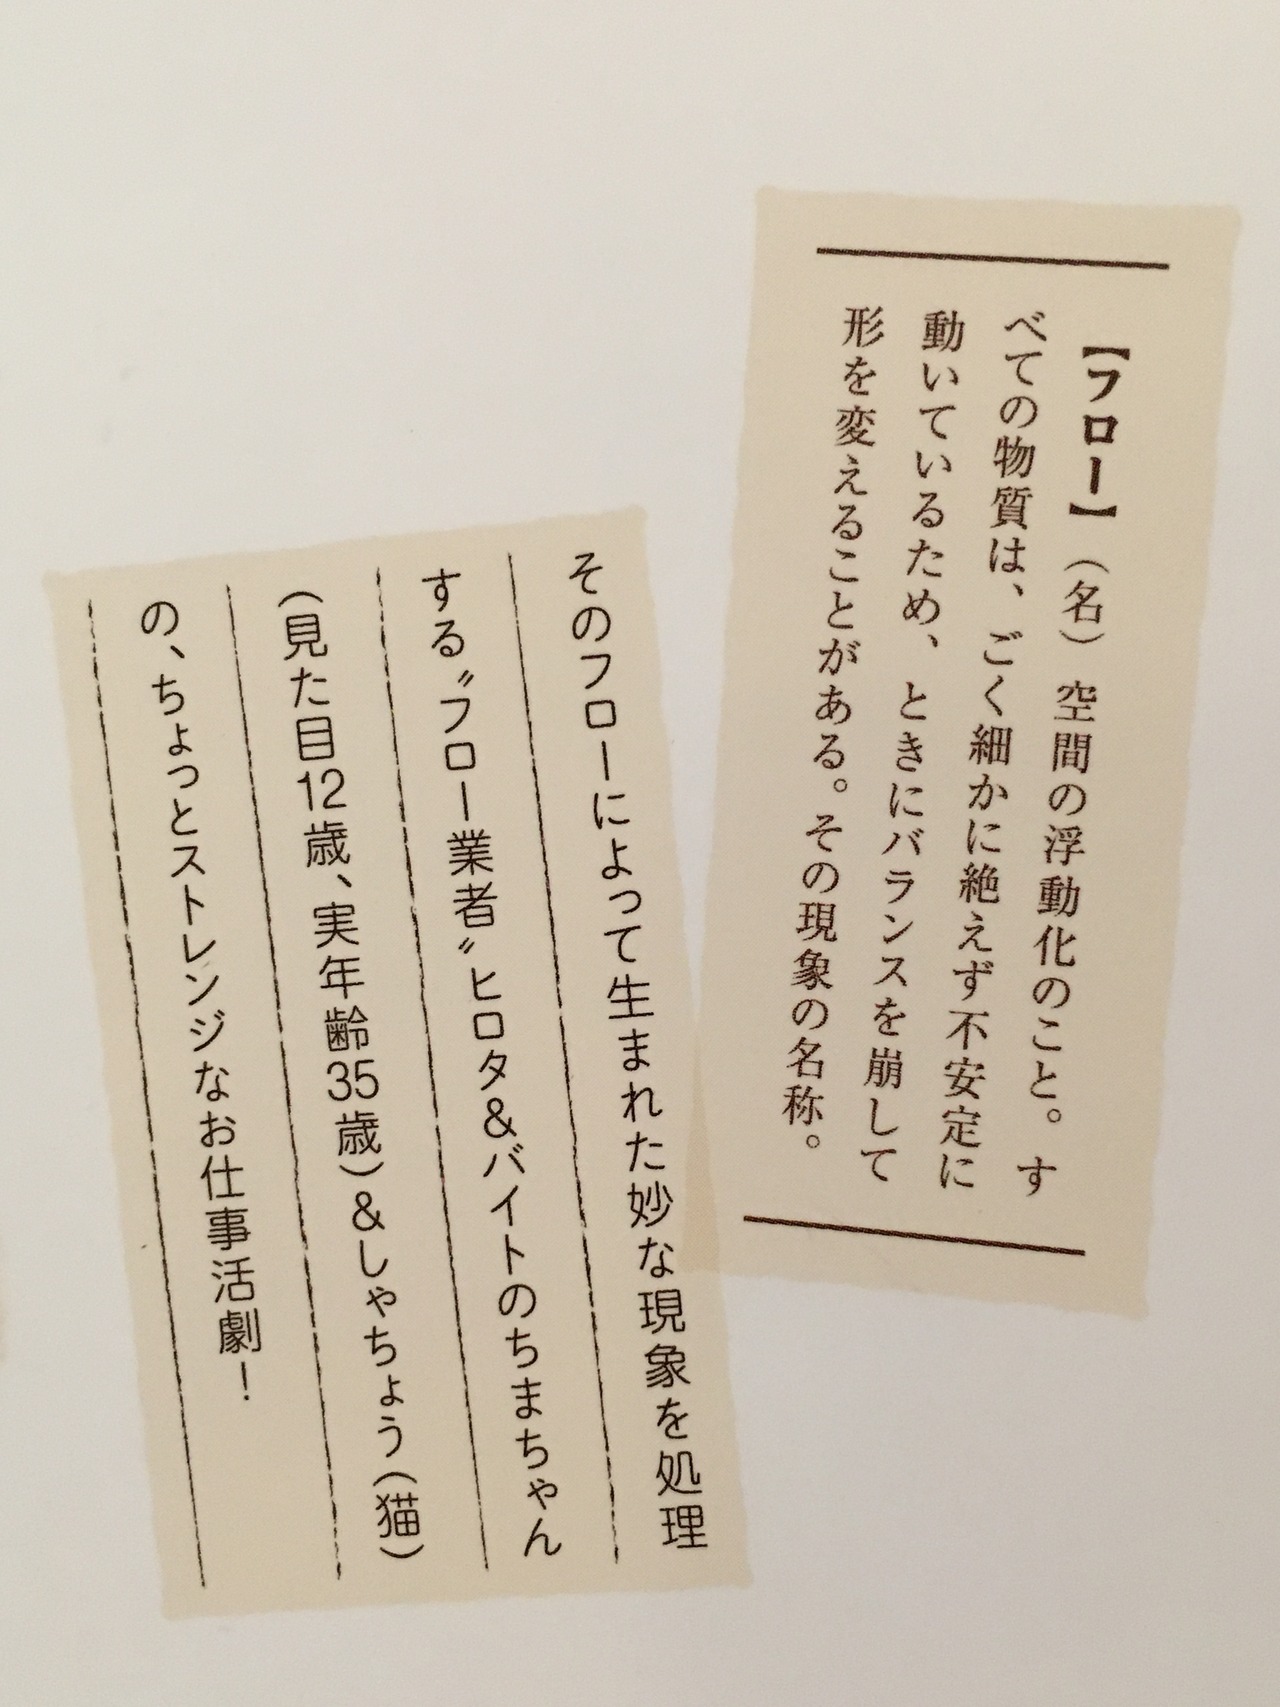 【フロー】（名）空間の浮動化のこと。す
べての物質は、ごく細かに絶えず不安定に
動いているため、ときにバランスを崩して
形を変えることがある。その現象の名称。
そのフローによって生まれた妙な現象を処理
する〝フロー業者〟ヒロタ&バイトのちまちゃん
(見た目12歳、実年齢35歳)&しゃちょう(猫)
の、ちょっとストレンジなお仕事活劇！